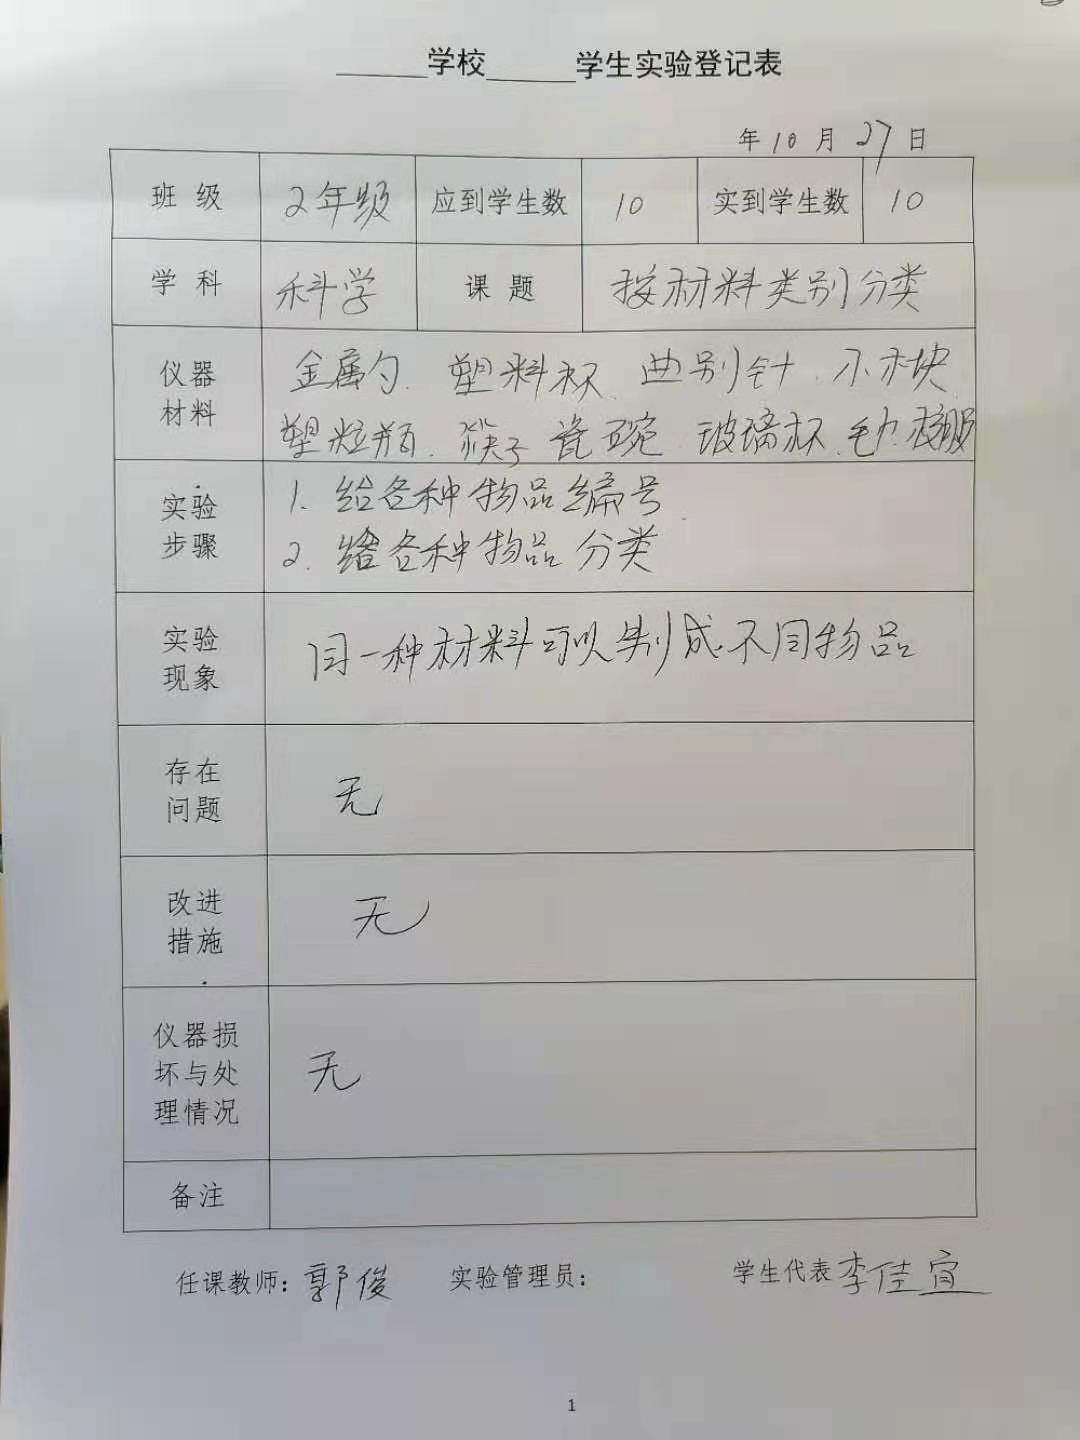 ______学校______学生实验登记表
年10月27日
班级 2年级 应到学生数 10 实到学生数 10
学科 科学 课题 按材料类别分类
仪器 金属勺、塑料杯、曲别针、小木块
材料 塑料瓶、筷子 瓷碗、玻璃杯、毛巾
实验 1.给各种物品编号
步骤 2.给各种物品分类
实验 同一种材料可以制成不同物品
现象
存在
问题 无
改进
措施 无
仪器损
坏与处 无
理情况
备注
任课教师：郭俊 实验管理员： 学生代表李佳宜
1